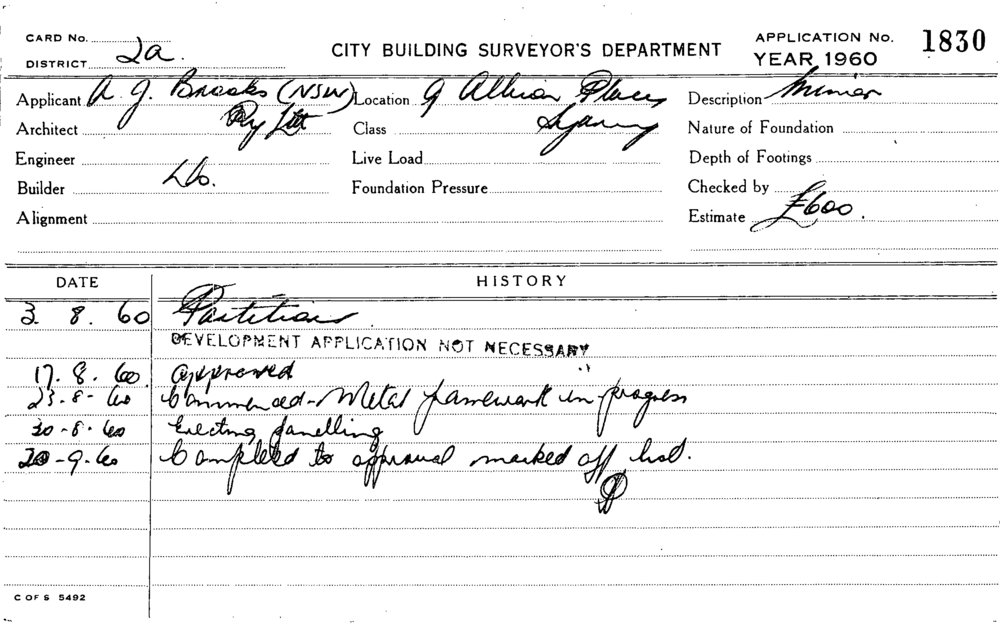 CARD No.
DISTRICT 2a.
CITY BUILDING SURVEYOR'S DEPARTMENT
APPLICATION No. 1830
YEAR 1960
Applicant A. J. Brooks (NSW) Pty Ltd
Location 9 Albion Place, Sydney
Description Minor
Architect
Class
Nature of Foundation
Engineer
Live Load
Depth of Footings
Builder
Foundation Pressure
Checked by
Alignment
Estimate £600.
DATE HISTORY
3. 8. 60 Partitions
DEVELOPMENT APPLICATION NOT NECESSARY
17. 8. 60. approved
23-8-60 Commenced - Metal framework in progress
30-8-60 Erecting panelling
20-9-60 Completed to approval marked off list.
C OF S 5492